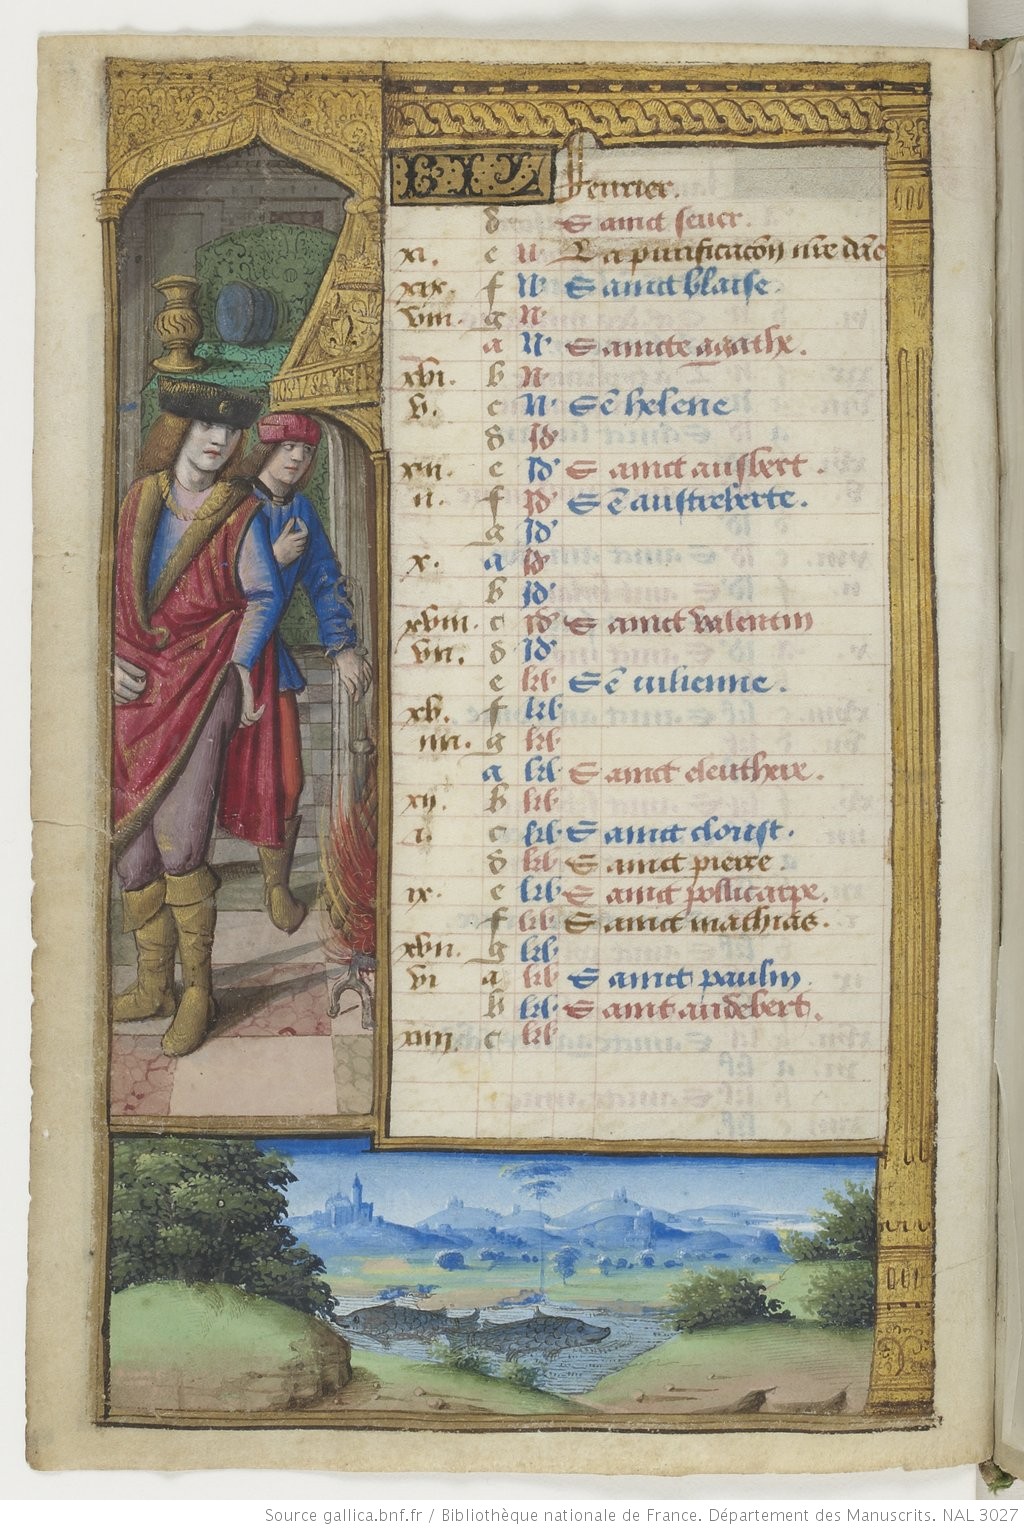 Feurier.
d Sainct seuer.
xi. e N La purificacõn nr̃e dãe
xix. f N Sainct blaise.
viii. g N
a N Saincte agathe.
xvi. b N
v. c N Sẽ helene
d Id
xiii. e Id Sainct ausbert.
ii. f Id Sẽ austreberte.
g Id
x. a Id
b Id
xviii. c Id Sainct valentin
vii. d Id
e kl Sẽ iulienne.
xv. f kl
iiii. g kl
a kl Sainct eleuthere.
xii. b kl
i. c kl Sainct clouist.
d kl Sainct pierre
ix. e kl Sainct pollicarpe.
f kl Sainct mathias.
xvii. g kl
vi a kl Sainct paulin
b kl Sainct audebert.
xiiii. c kl
Source gallica.bnf.fr / Bibliothèque nationale de France. Département des Manuscrits. NAL 3027